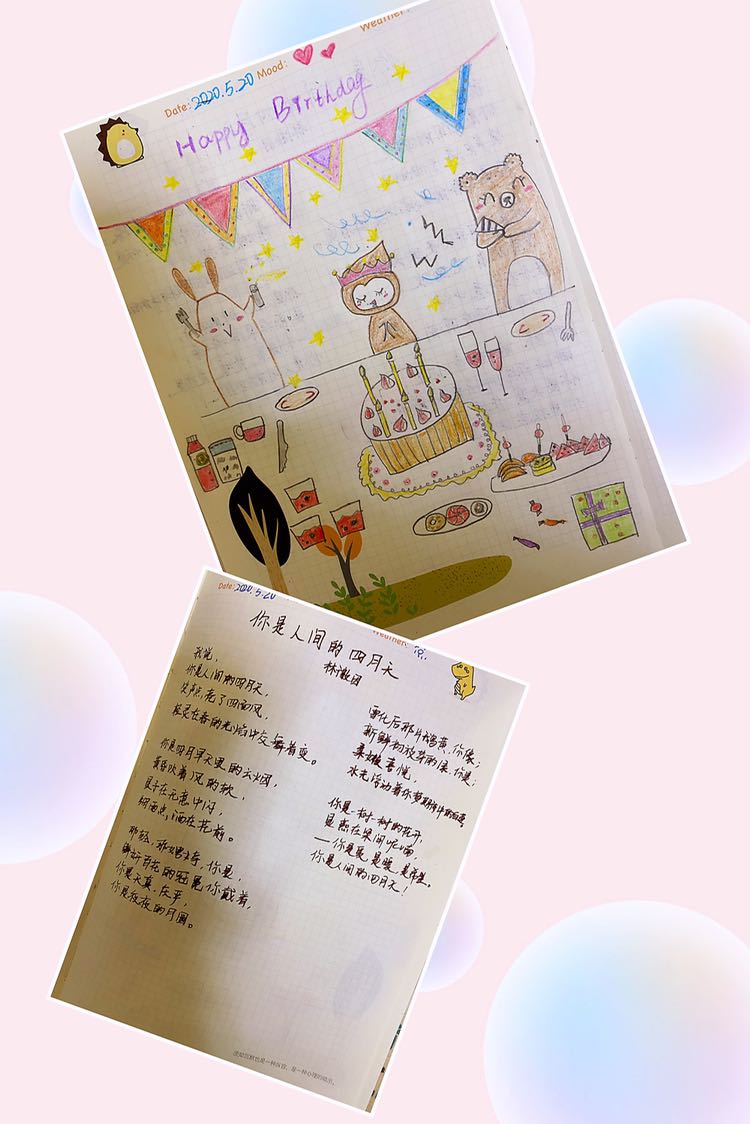 Weather:
Date: 2020.5.20 Mood:
Happy Birthday
Date: 2020.5.20
Weather:
你是人间的四月天
林徽因
我说,
你是人间的四月天,
笑声点亮了四面风,
轻灵在春的光焰中交舞着变。
你是四月早天里的云烟,
黄昏吹着风的软,
星子在无意中闪,
细雨点,洒在花前。
那轻,那娉婷,你是,
鲜妍百花的冠冕你戴着,
你是天真,庄严,
你是夜夜的月圆。
雪化后那片鹅黄,你像;
新鲜初放芽的绿,你是;
柔嫩喜悦,
水光浮动着你梦期待中的白莲
你是一树一树的花开,
是燕在梁间呢喃,
——你是爱是暖,是希望。
你是人间的四月天!